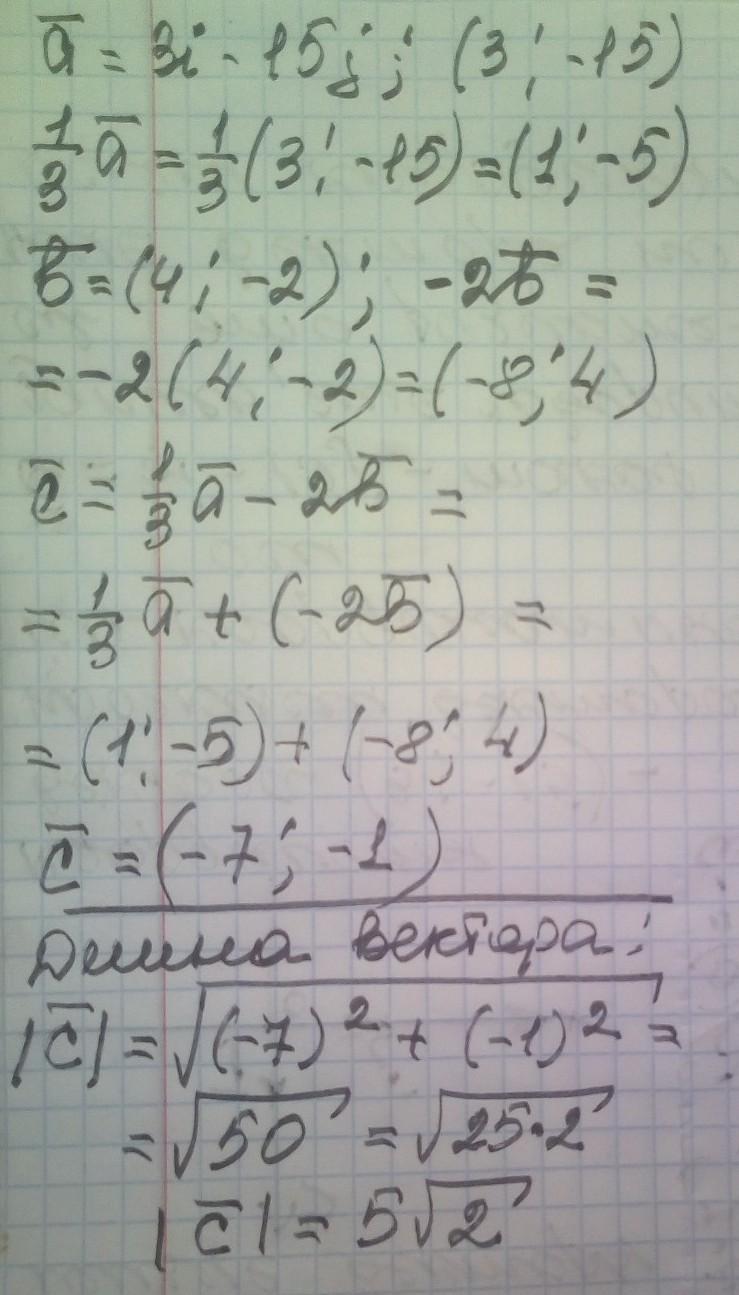 a̅ = 3i - 15j ; (3 ; -15)
1/3 a̅ = 1/3 (3 ; -15) = (1 ; -5)
b̅ = (4 ; -2) ; -2b̅ =
= -2 (4 ; -2) = (-8 ; 4)
c̅ = 1/3 a̅ - 2b̅ =
= 1/3 a̅ + (-2b̅) =
= (1 ; -5) + (-8 ; 4)
c̅ = (-7 ; -1)
Длина вектора:
|c̅| = √((-7)² + (-1)²) =
= √50 = √(25·2)
|c̅| = 5√2